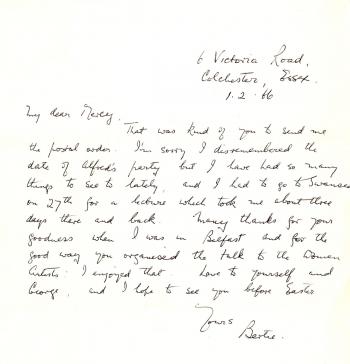 6 Victoria Road,
Colchester, Essex.
1.2.66
My dear Mercy,
That was kind of you to send me
the postal order. I'm sorry I disremembered the
date of Alfred's party but I have had so many
things to see to lately, and I had to go to Swansea
on 27th for a lecture which took me about three
days there and back. Many thanks for your
goodness when I was in Belfast and for the
good way you organised the talk to the Women
Artists. I enjoyed that. Love to yourself and
George, and I hope to see you before Easter
Yours
Bertie.